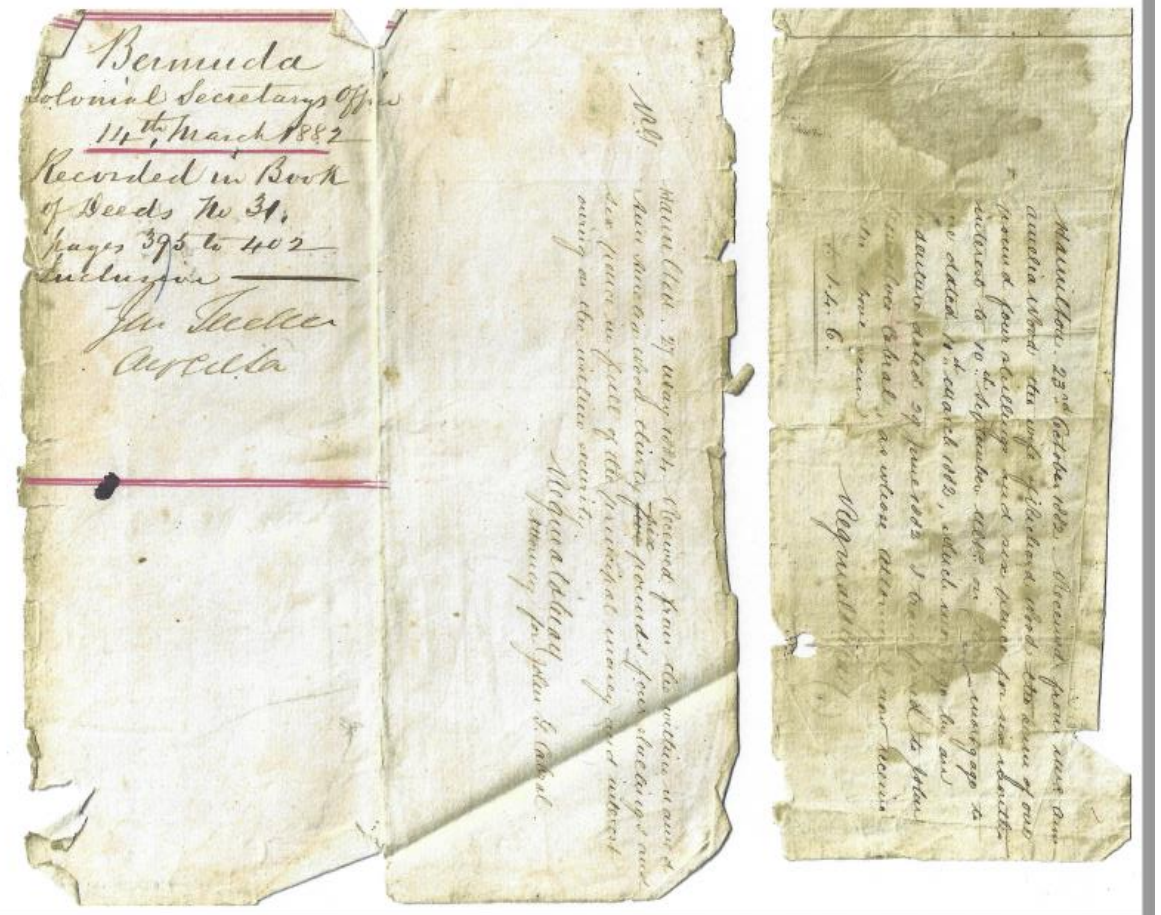 Bermuda
Colonial Secretarys Office
14th March 1882
Recorded in Book
of Deeds No 31.
pages 395 to 402
Inclusive
Jn Tucker
Hamilton. 27 May 1884, Received from the within named
Ann Amelia Wood thirty four six pounds five shillings and
six pence in full of the principal money and interest
owing on the within security.
Attorney for John G. Cabral
Hamilton. 23rd October 1882. Received from Mrs Ann
Amelia Wood the wife of Richard Wood the sum of one
pound four shillings and six pence for six months
interest to 10th September 1882 on mortgage to
me dated March 1882, which mortgage by an
Indenture dated 29 June 1882 I transferred to John
Cabral, as whose attorney I now receive
the above sum
£1. 4. 6.